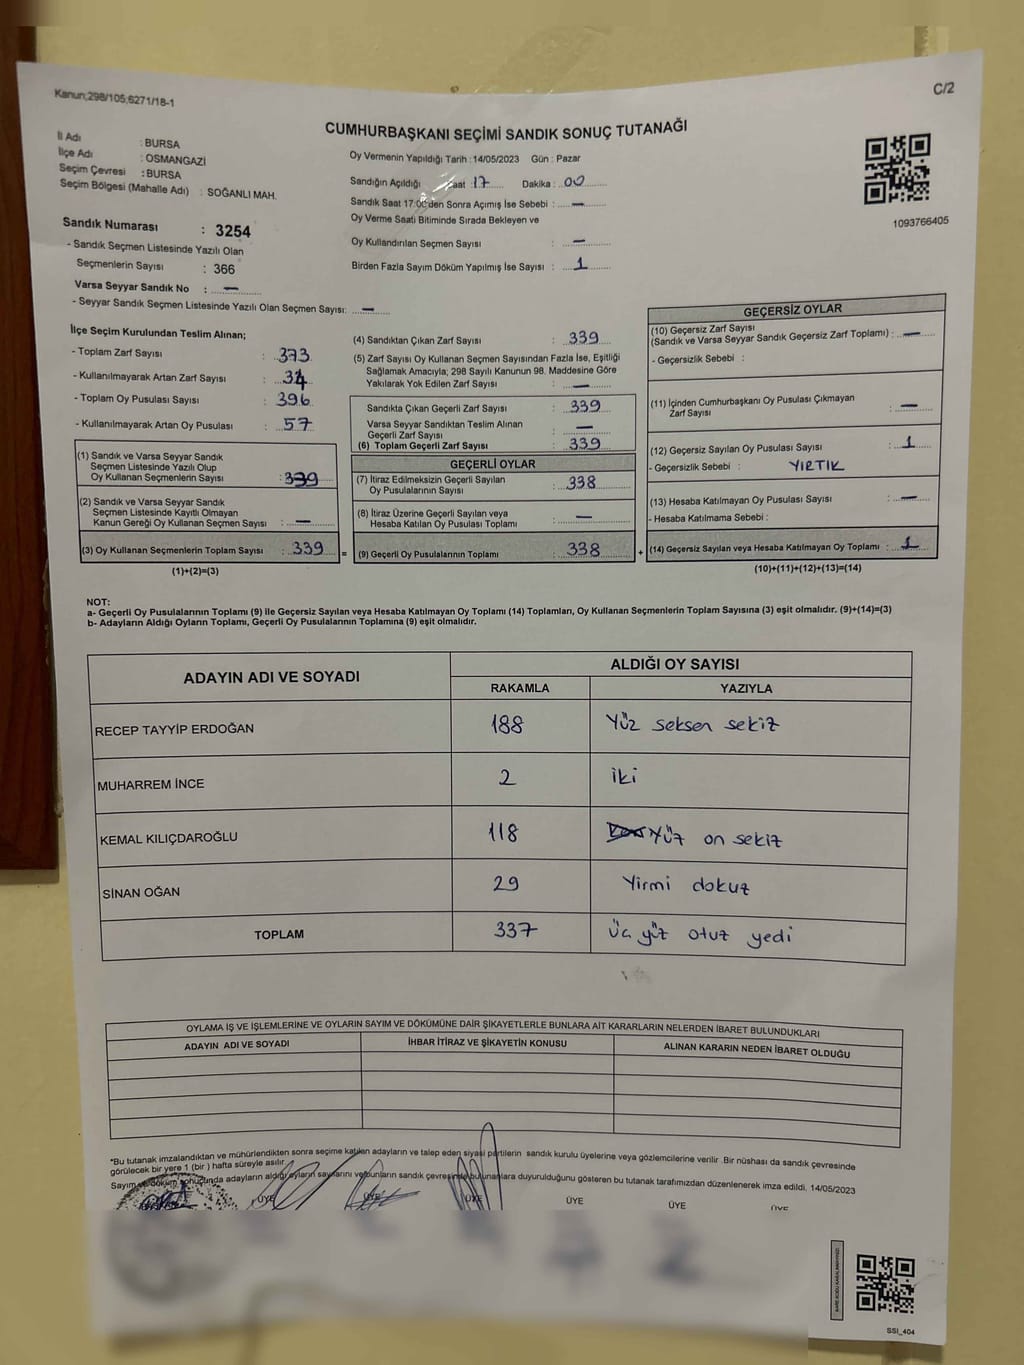 Kanun;298/105;6271/18-1
C/2
CUMHURBAŞKANI SEÇİMİ SANDIK SONUÇ TUTANAĞI
İl Adı : BURSA
İlçe Adı : OSMANGAZİ
Seçim Çevresi : BURSA
Seçim Bölgesi (Mahalle Adı) : SOĞANLI MAH.
Oy Vermenin Yapıldığı Tarih : 14/05/2023 Gün : Pazar
Sandığın Açıldığı Saat : 17 Dakika : 00
Sandık Saat 17:00'den Sonra Açımış İse Sebebi : —
Oy Verme Saati Bitiminde Sırada Bekleyen ve
Oy Kullandırılan Seçmen Sayısı : —
Birden Fazla Sayım Döküm Yapılmış İse Sayısı : 1
1093766405
Sandık Numarası : 3254
- Sandık Seçmen Listesinde Yazılı Olan
Seçmenlerin Sayısı : 366
Varsa Seyyar Sandık No : —
- Seyyar Sandık Seçmen Listesinde Yazılı Olan Seçmen Sayısı: —
İlçe Seçim Kurulundan Teslim Alınan;
- Toplam Zarf Sayısı : 373
- Kullanılmayarak Artan Zarf Sayısı : 34
- Toplam Oy Pusulası Sayısı : 396
- Kullanılmayarak Artan Oy Pusulası : 57
(1) Sandık ve Varsa Seyyar Sandık
Seçmen Listesinde Yazılı Olup
Oy Kullanan Seçmenlerin Sayısı : 339
(2) Sandık ve Varsa Seyyar Sandık
Seçmen Listesinde Kayıtlı Olmayan
Kanun Gereği Oy Kullanan Seçmen Sayısı : —
(3) Oy Kullanan Seçmenlerin Toplam Sayısı : 339 =
(1)+(2)=(3)
(4) Sandıktan Çıkan Zarf Sayısı : 339
(5) Zarf Sayısı Oy Kullanan Seçmen Sayısından Fazla İse, Eşitliği
Sağlamak Amacıyla; 298 Sayılı Kanunun 98. Maddesine Göre
Yakılarak Yok Edilen Zarf Sayısı : —
Sandıkta Çıkan Geçerli Zarf Sayısı : 339
Varsa Seyyar Sandıktan Teslim Alınan
Geçerli Zarf Sayısı : —
(6) Toplam Geçerli Zarf Sayısı : 339
GEÇERLİ OYLAR
(7) İtiraz Edilmeksizin Geçerli Sayılan
Oy Pusulalarının Sayısı : 338
(8) İtiraz Üzerine Geçerli Sayılan veya
Hesaba Katılan Oy Pusulası Toplamı : —
(9) Geçerli Oy Pusulalarının Toplamı : 338 +
GEÇERSİZ OYLAR
(10) Geçersiz Zarf Sayısı
(Sandık ve Varsa Seyyar Sandık Geçersiz Zarf Toplamı) : —
- Geçersizlik Sebebi :
(11) İçinden Cumhurbaşkanı Oy Pusulası Çıkmayan
Zarf Sayısı : —
(12) Geçersiz Sayılan Oy Pusulası Sayısı : 1
- Geçersizlik Sebebi : YIRTIK
(13) Hesaba Katılmayan Oy Pusulası Sayısı : —
- Hesaba Katılmama Sebebi :
(14) Geçersiz Sayılan veya Hesaba Katılmayan Oy Toplamı : 1
(10)+(11)+(12)+(13)=(14)
NOT:
a- Geçerli Oy Pusulalarının Toplamı (9) ile Geçersiz Sayılan veya Hesaba Katılmayan Oy Toplamı (14) Toplamları, Oy Kullanan Seçmenlerin Toplam Sayısına (3) eşit olmalıdır. (9)+(14)=(3)
b- Adayların Aldığı Oyların Toplamı, Geçerli Oy Pusulalarının Toplamına (9) eşit olmalıdır.
ADAYIN ADI VE SOYADI ALDIĞI OY SAYISI
RAKAMLA YAZIYLA
RECEP TAYYİP ERDOĞAN 188 Yüz seksen sekiz
MUHARREM İNCE 2 iki
KEMAL KILIÇDAROĞLU 118 Yüz on sekiz
SİNAN OĞAN 29 Yirmi dokuz
TOPLAM 337 Üç yüz otuz yedi
OYLAMA İŞ VE İŞLEMLERİNE VE OYLARIN SAYIM VE DÖKÜMÜNE DAİR ŞİKAYETLERLE BUNLARA AİT KARARLARIN NELERDEN İBARET BULUNDUKLARI
ADAYIN ADI VE SOYADI İHBAR İTİRAZ VE ŞİKAYETİN KONUSU ALINAN KARARIN NEDEN İBARET OLDUĞU
*Bu tutanak imzalandıktan ve mühürlendikten sonra seçime katılan adayların ve talep eden siyasi partilerin sandık kurulu üyelerine veya gözlemcilerine verilir .Bir nüshası da sandık çevresinde
görülecek bir yere 1 (bir ) hafta süreyle asılır.
Sayım ve döküm sonucunda adayların aldığı oyların sayılarını ve bunların sandık çevresinde bulunanlara duyurulduğunu gösteren bu tutanak tarafımızdan düzenlenerek imza edildi. 14/05/2023
ÜYE ÜYE ÜYE ÜYE ÜYE ÜYE
SSI_404